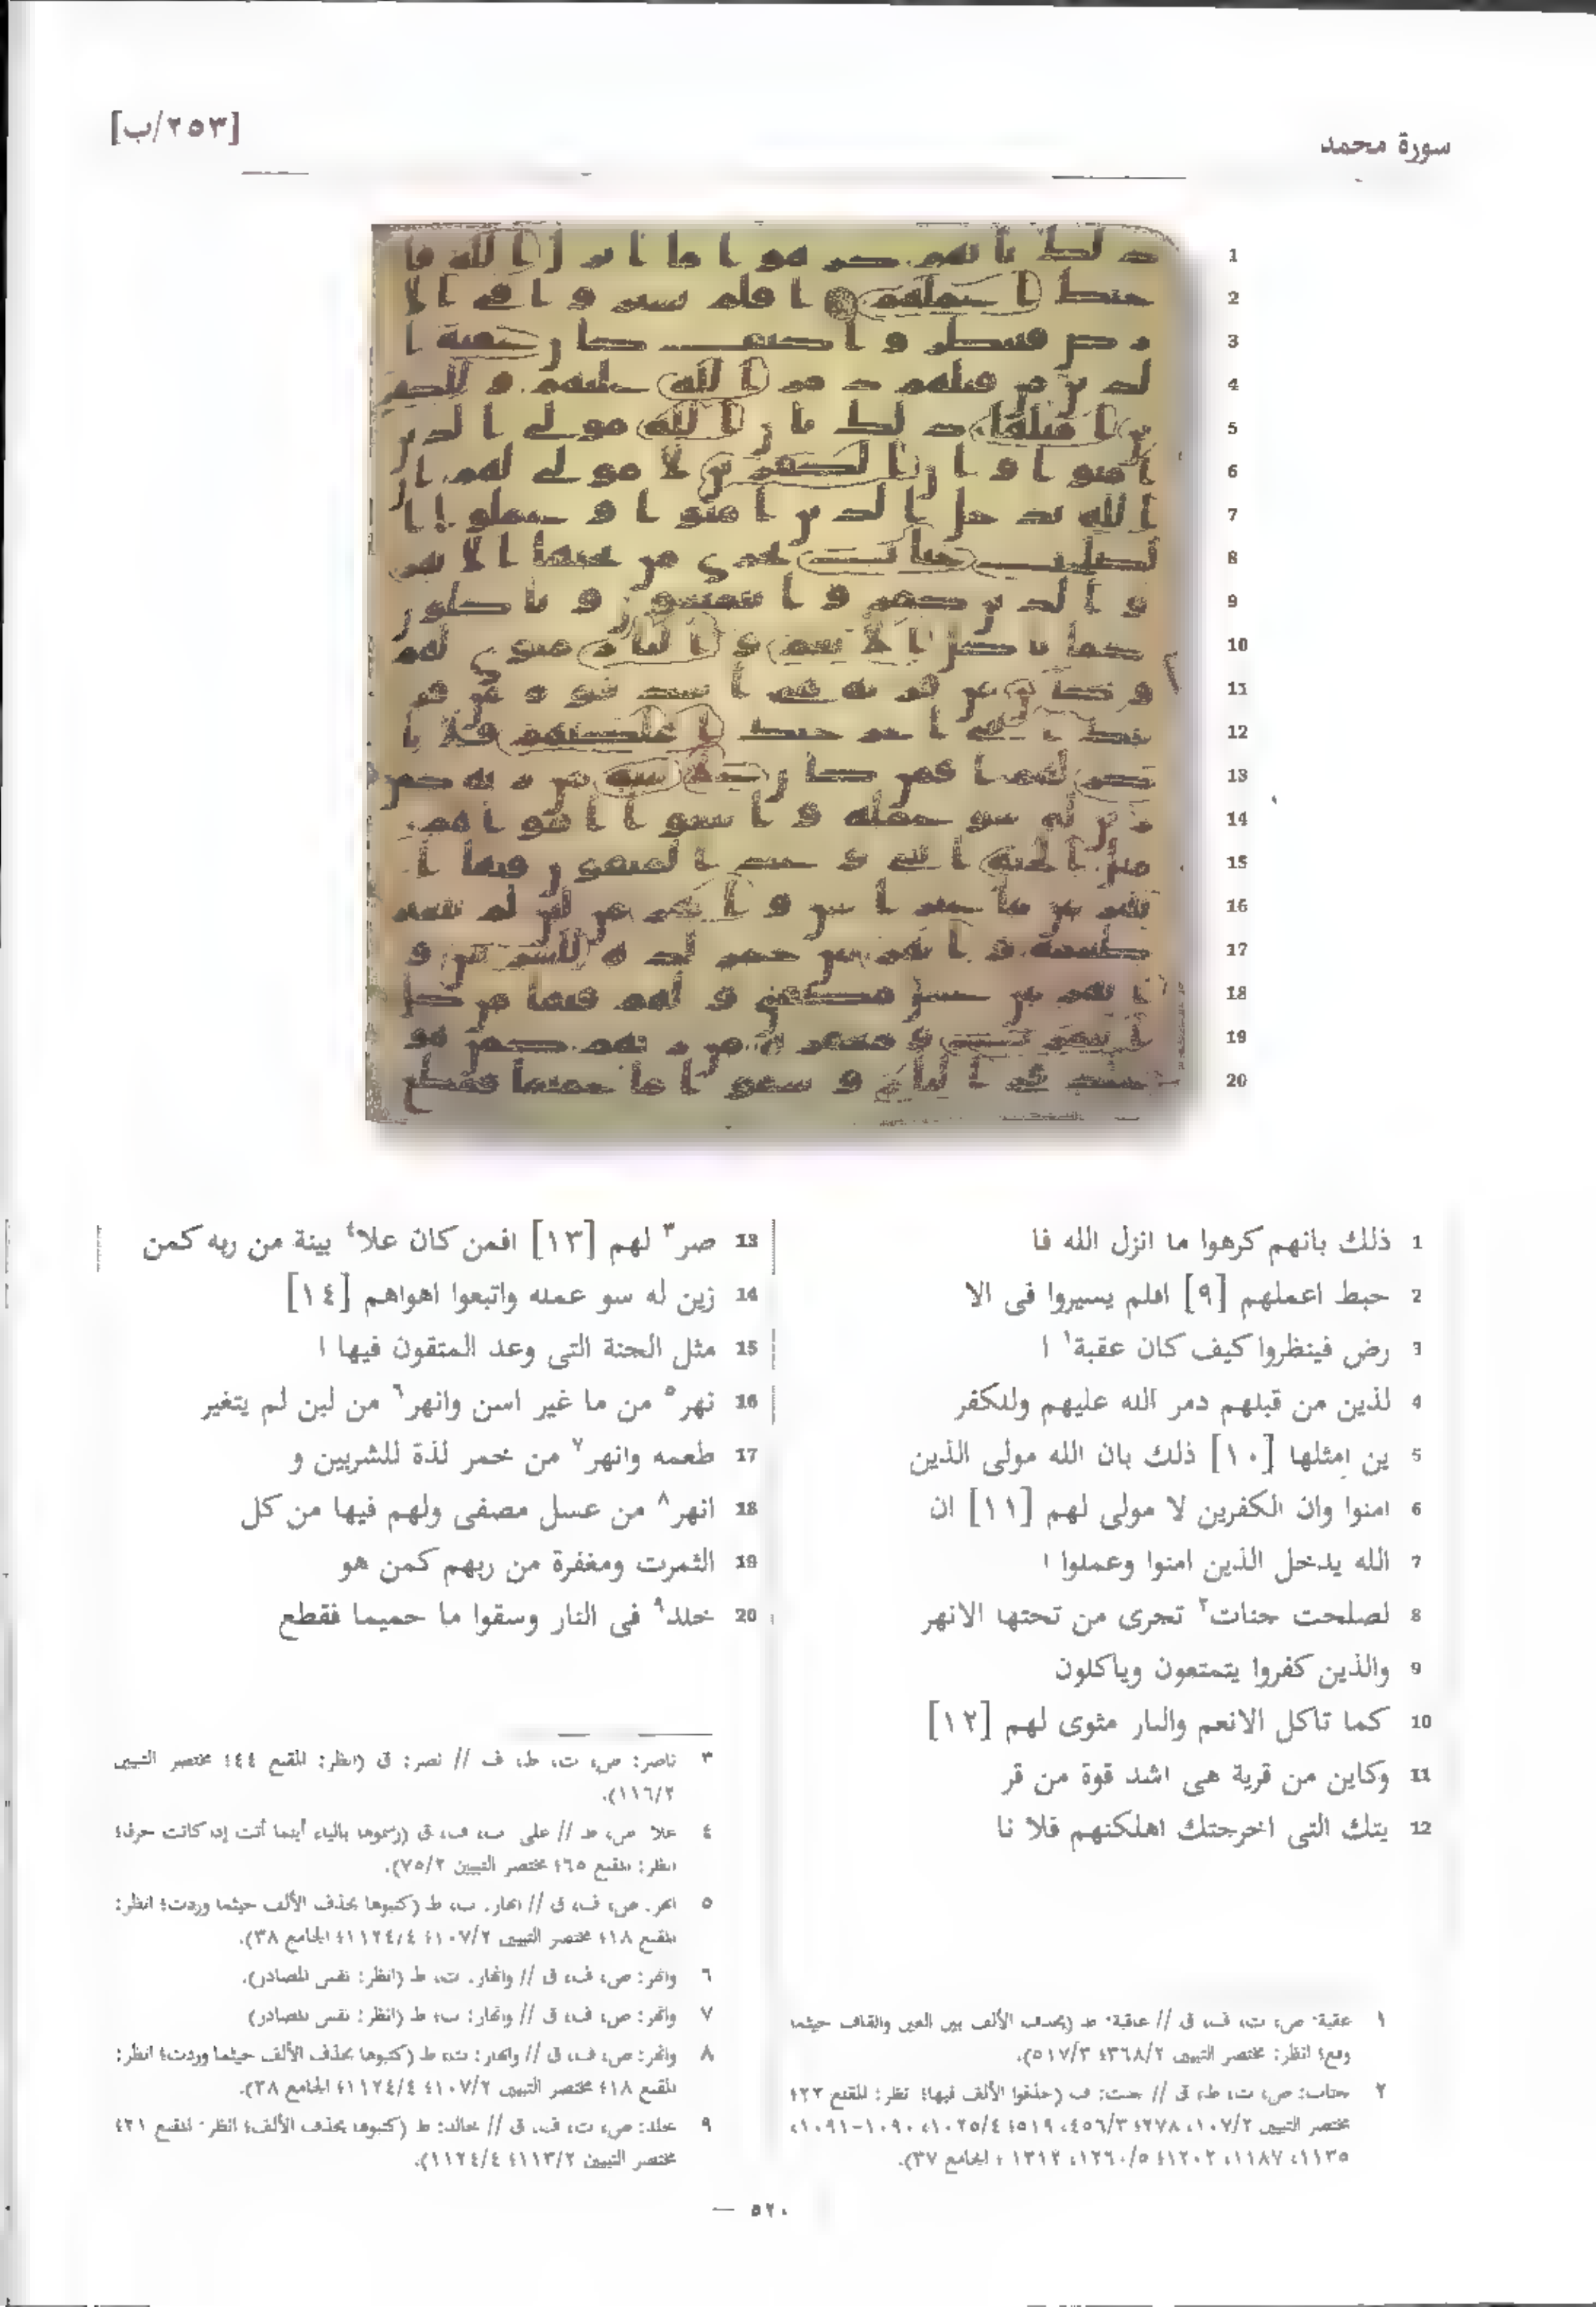 سورة محمد
[٢٥٣/ب]
1 ذلك بانهم كرهوا ما انزل الله فا
2 حبط اعملهم [٩] افلم يسيروا فى الا
3 رض فينظروا كيف كان عقبة١ ا
4 لذين من قبلهم دمر الله عليهم وللكفر
5 ين امثلها [١٠] ذلك بان الله مولى الذين
6 امنوا وان الكفرين لا مولى لهم [١١] ان
7 الله يدخل الذين امنوا وعملوا ا
8 لصلحت جنات٢ تجرى من تحتها الانهر
9 والذين كفروا يتمتعون وياكلون
10 كما تاكل الانعم والنار مثوى لهم [١٢]
11 وكاين من قرية هى اشد قوة من قر
12 يتك التى اخرجتك اهلكنهم فلا نا
13 صر٣ لهم [١٣] افمن كان علا٤ بينة من ربه كمن
14 زين له سو عمله واتبعوا اهواهم [١٤]
15 مثل الجنة التى وعد المتقون فيها ا
16 نهر٥ من ما غير اسن وانهر٦ من لبن لم يتغير
17 طعمه وانهر٧ من خمر لذة للشربين و
18 انهر٨ من عسل مصفى ولهم فيها من كل
19 الثمرت ومغفرة من ربهم كمن هو
20 خلد٩ فى النار وسقوا ما حميما فقطع
١ عقبة: ص، ت، ف، ق // عاقبة: ط (بحذف الألف بين العين والقاف حيثما
وقع؛ انظر: مختصر التبيين ٣٦٨/٢؛ ٥١٧/٣).
٢ جنات: ص، ت، ط، ق // جنت: ف (حذفوا الألف فيها؛ نظر: المقنع ٢٢؛
مختصر التبيين ١٠٧/٢، ٢٧٨؛ ٤٥٦/٣، ٥١٩؛ ١٠٢٥/٤، ١٠٩٠-١٠٩١،
١١٣٥، ١١٨٧، ١٢٠٢؛ ١٢٦٠/٥، ١٣١٢؛ الجامع ٣٧).
٣ ناصر: ص، ت، ط، ف // نصر: ق (انظر: المقنع ٤٤؛ مختصر التبيين
١١٦/٢).
٤ علا: ص، ط // على: ت، ف، ق (رسموها بالياء أينما أتت إذا كانت حرفا؛
انظر: المقنع ٦٥؛ مختصر التبيين ٧٥/٢).
٥ انهر: ص، ف، ق // انهار: ت، ط (كتبوها بحذف الألف حيثما وردت؛ انظر:
المقنع ١٨؛ مختصر التبيين ١٠٧/٢؛ ١١٢٤/٤؛ الجامع ٣٨).
٦ وانهر: ص، ف، ق // وانهار: ت، ط (انظر: نفس المصادر).
٧ وانهر: ص، ف، ق // وانهار: ت، ط (انظر: نفس المصادر)
٨ وانهر: ص، ف، ق // وانهار: ت، ط (كتبوها بحذف الألف حيثما وردت؛ انظر:
المقنع ١٨؛ مختصر التبيين ١٠٧/٢؛ ١١٢٤/٤؛ الجامع ٣٨).
٩ خلد: ص، ت، ف، ق // خالد: ط (كتبوها بحذف الألف؛ انظر: المقنع ٢١؛
مختصر التبيين ١١٣/٢؛ ١١٢٤/٤).
— ٥٢٠